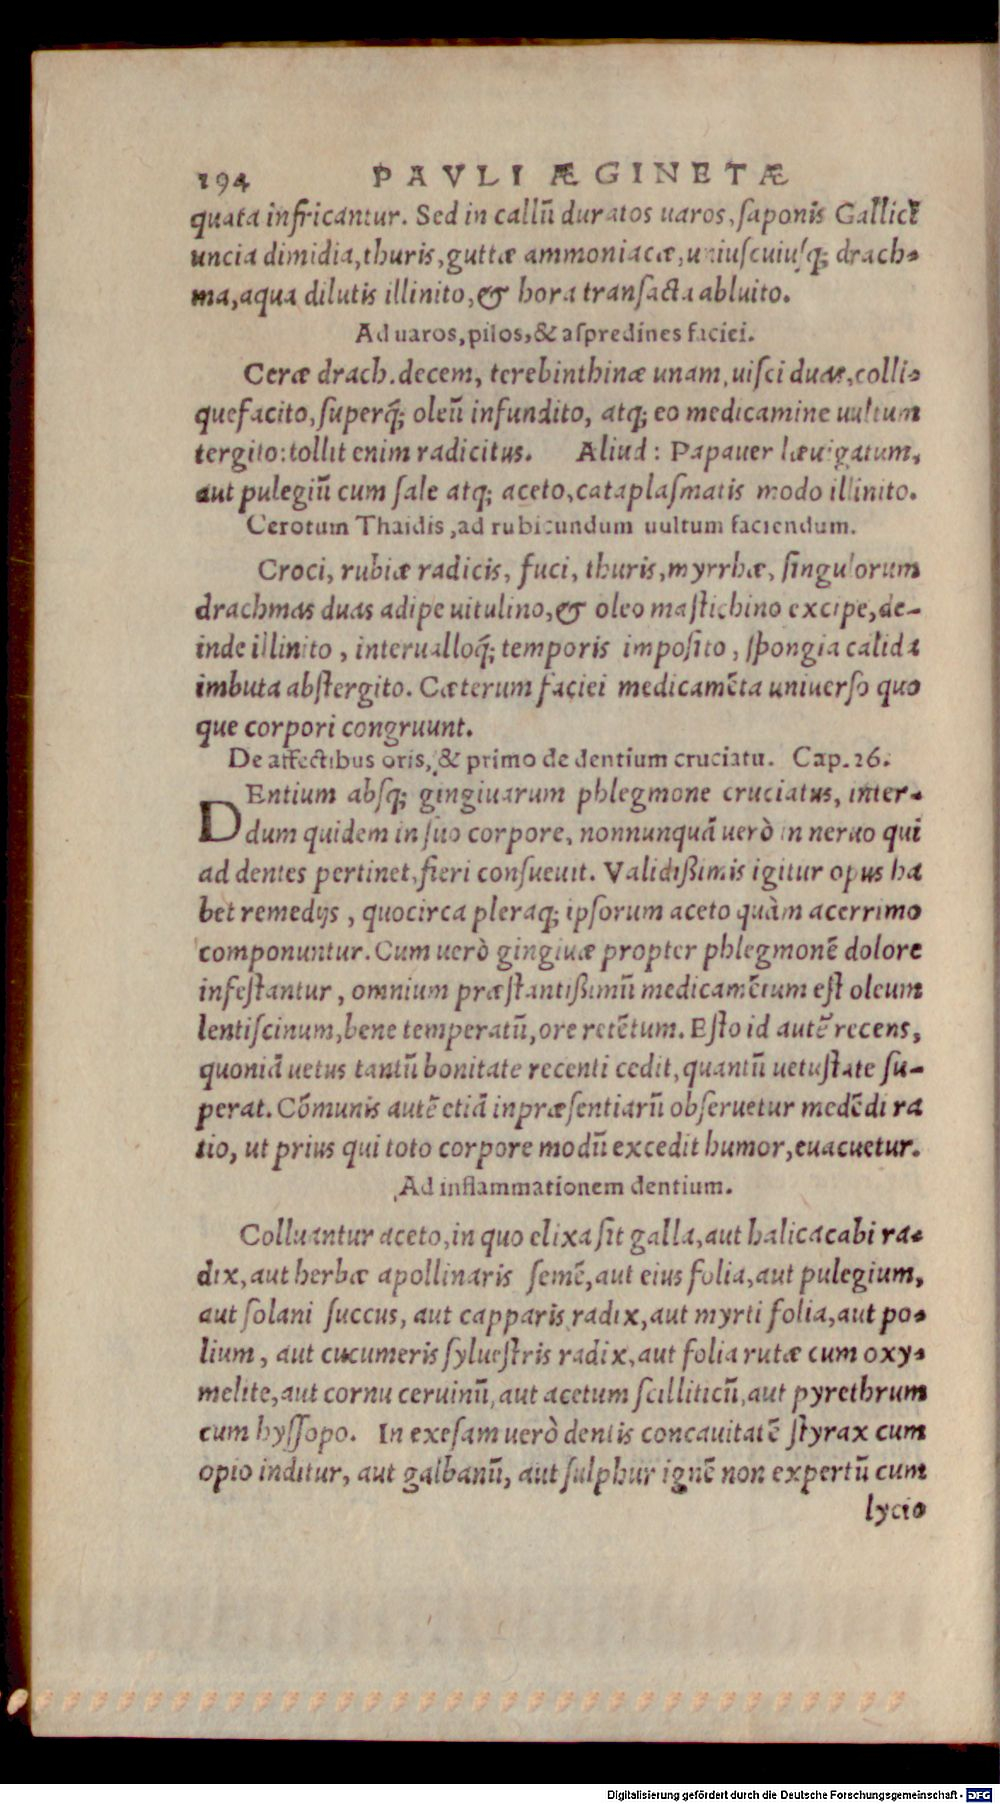 194 PAVLI ÆGINETÆ
quata infricantur. Sed in callũ duratos uaros, ſaponis Gallici
uncia dimidia, thuris, guttæ ammoniacæ, uniuſcuiuſq; drach-
ma, aqua dilutis illinito, & hora tranſacta abluito.
Ad uaros, pilos, & aſpredines faciei.
Ceræ drach. decem, terebinthinæ unam, uiſci duas, colli-
quefacito, ſuperq́; oleũ infundito, atq; eo medicamine uultum
tergito: tollit enim radicitus. Aliud: Papauer læuigatum,
aut pulegiũ cum ſale atq; aceto, cataplaſmatis modo illinito.
Cerotum Thaidis, ad rubicundum uultum faciendum.
Croci, rubiæ radicis, fuci, thuris, myrrhæ, ſingulorum
drachmas duas adipe uitulino, & oleo maſtichino excipe, de-
inde illinito, interualloq́; temporis impoſito, ſpongia calida
imbuta abſtergito. Cæterum faciei medicamẽta uniuerſo quo
que corpori congruunt.
De affectibus oris, & primo de dentium cruciatu. Cap. 26.
DEntium abſq; gingiuarum phlegmone cruciatus, inter-
dum quidem in ſuo corpore, nonnunquã uerò in neruo qui
ad dentes pertinet, fieri conſueuit. Validißimis igitur opus ha
bet remedijs, quocirca pleraq; ipſorum aceto quàm acerrimo
componuntur. Cum uerò gingiuæ propter phlegmonẽ dolore
infeſtantur, omnium præſtantißimũ medicamẽtum eſt oleum
lentiſcinum, bene temperatũ, ore retẽtum. Eſto id autẽ recens,
quoniã uetus tantũ bonitate recenti cedit, quantũ uetuſtate ſu-
perat. Cõmunis autẽ etiã inpræſentiarũ obſeruetur medẽdi ra
tio, ut prius qui toto corpore modũ excedit humor, euacuetur.
Ad inflammationem dentium.
Colluantur aceto, in quo elixa ſit galla, aut halicacabi ra-
dix, aut herbæ apollinaris ſemẽ, aut eius folia, aut pulegium,
aut ſolani ſuccus, aut capparis radix, aut myrti folia, aut po-
lium, aut cucumeris ſylueſtris radix, aut folia rutæ cum oxy-
melite, aut cornu ceruinũ, aut acetum ſcilliticũ, aut pyrethrum
cum hyſſopo. In exeſam uerò dentis concauitatẽ ſtyrax cum
opio inditur, aut galbanũ, aut ſulphur ignẽ non expertũ cum
lycio
Digitalisierung gefördert durch die Deutsche Forschungsgemeinschaft - DFG